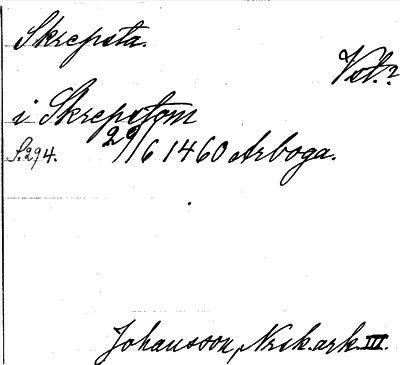 Skrepsta.
Vstl.?
i Skrepstom
S. 294. 29/6 1460 Arboga.
Johansson, Nrik.ark. III.